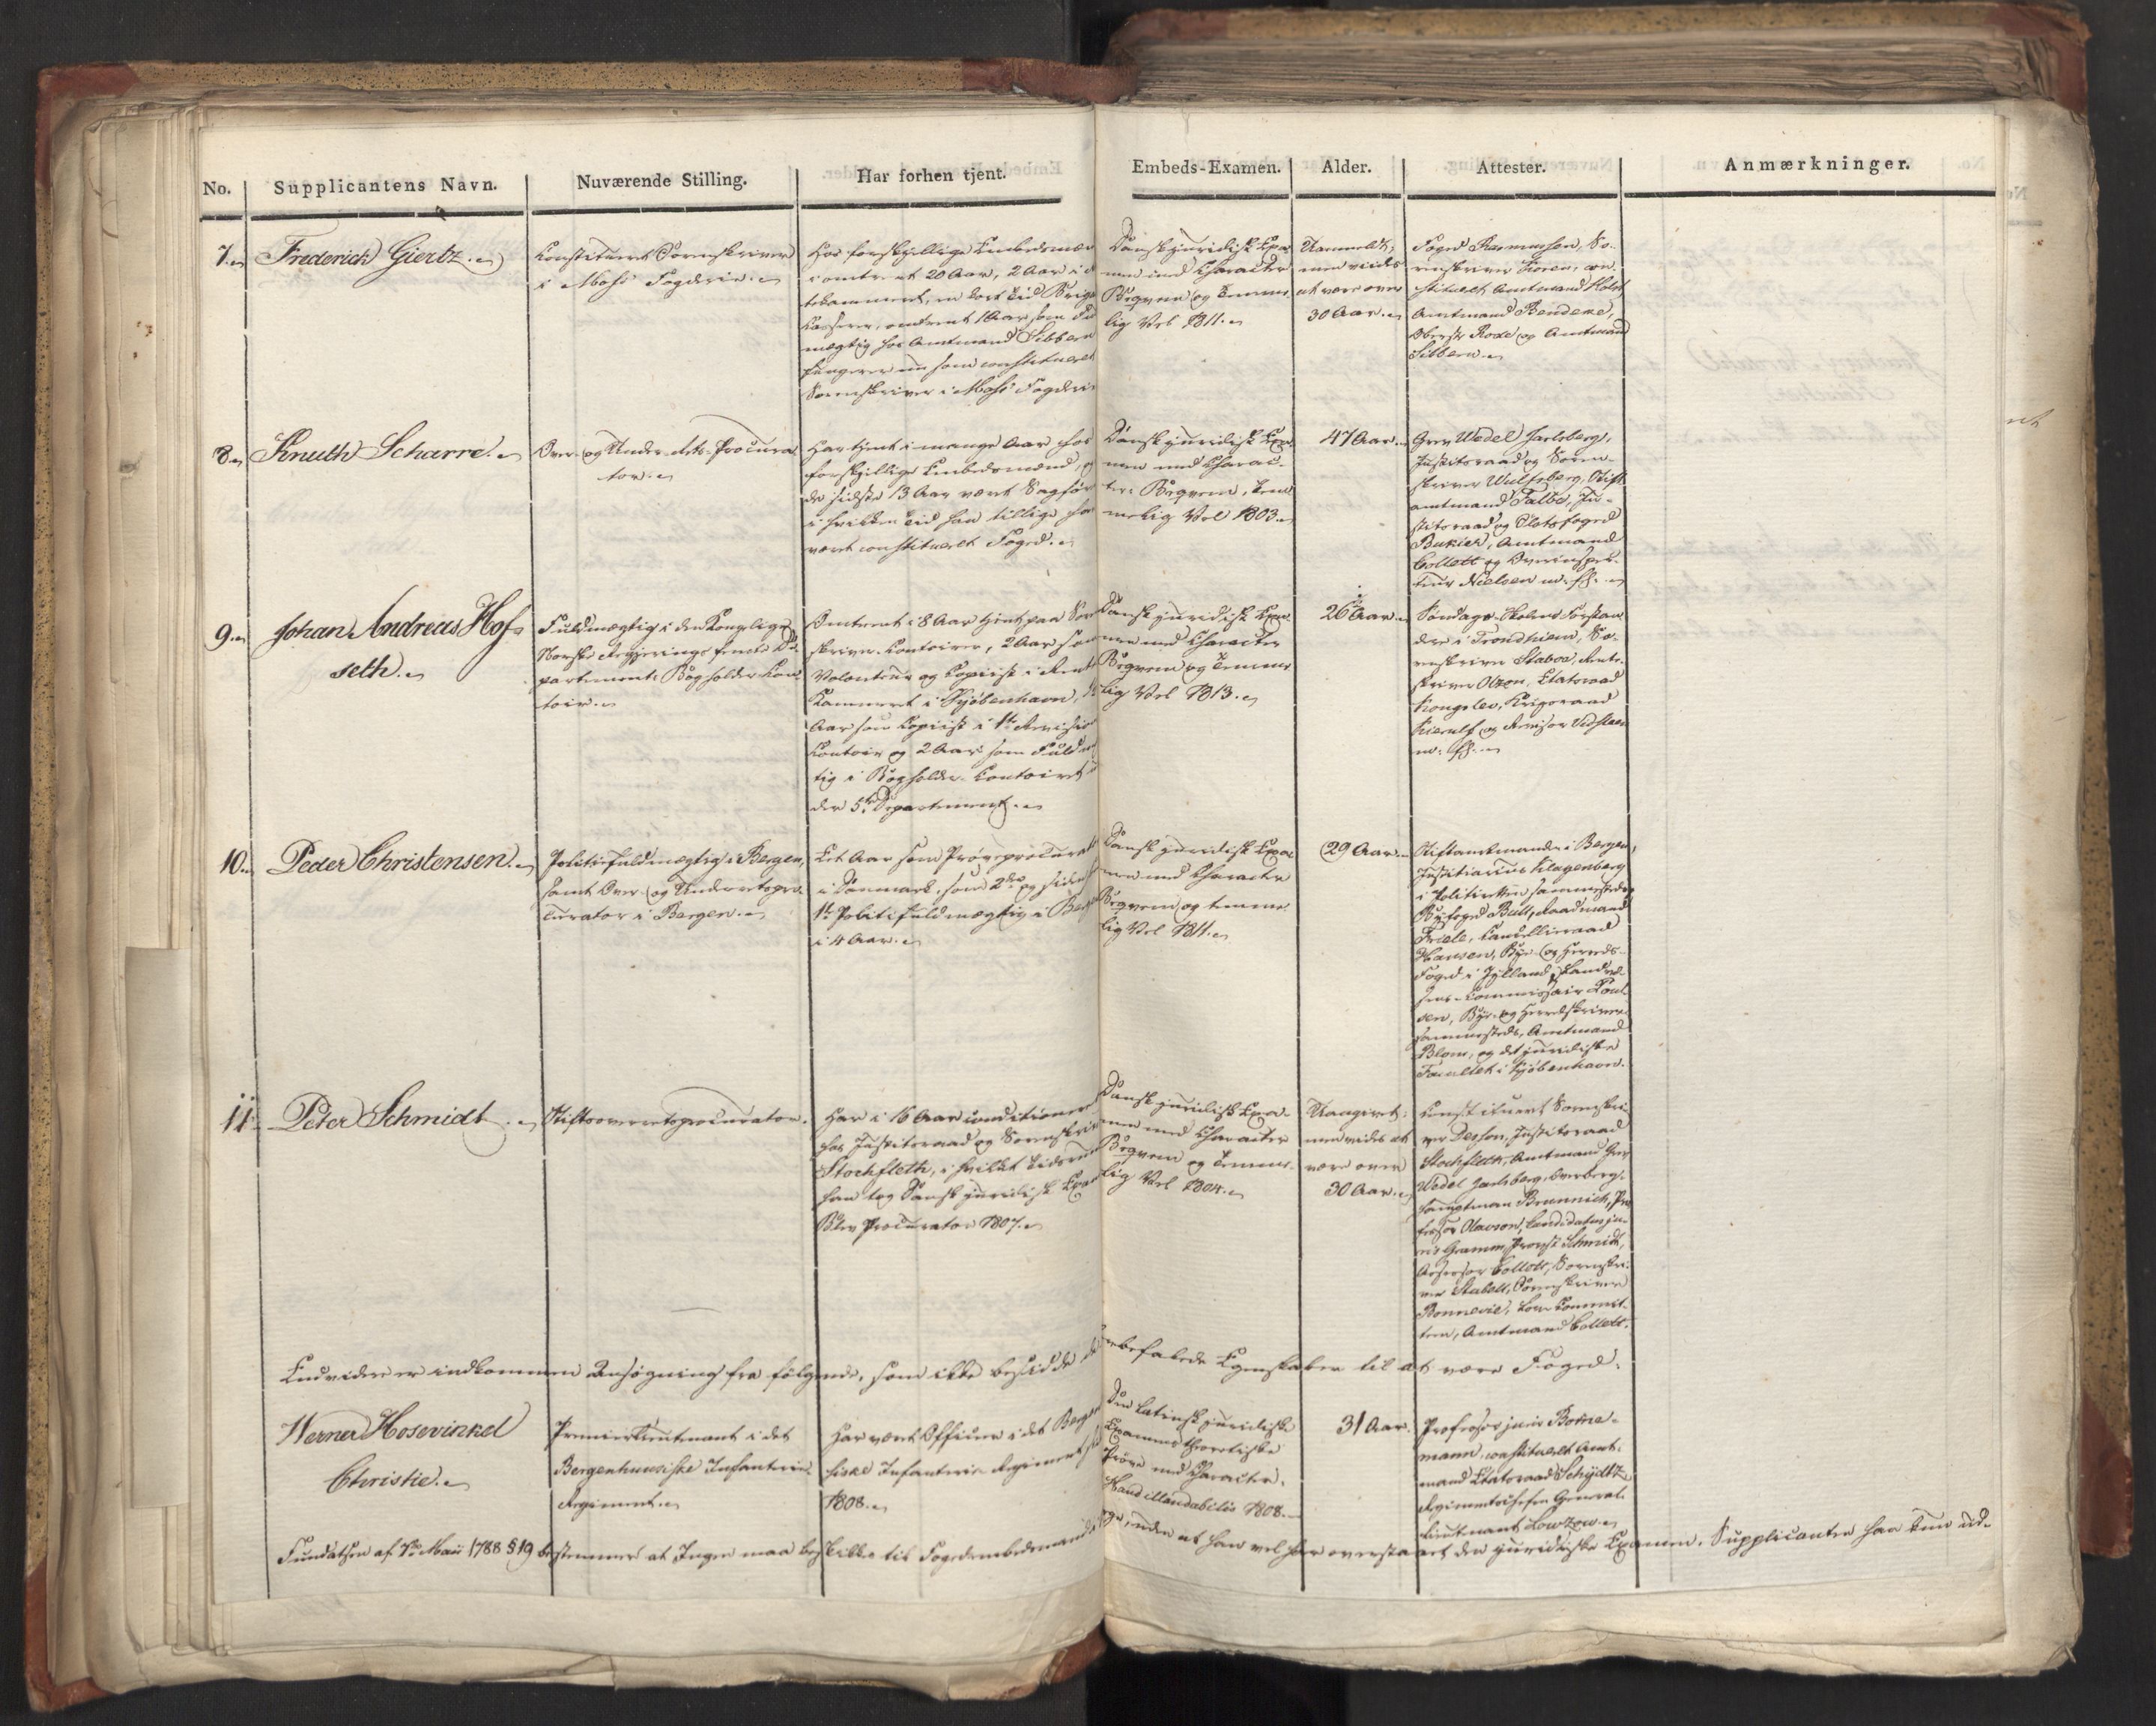 No.
Supplicantens Navn.
Nuværende Stilling.
Har forhen tjent.
Embeds-Examen.
Alder.
Attester.
Anmærkninger.
7.
Frederich Giertz.
Constitueret Sorenskriver
i Moss Fogderie.
Hos forskjellige Embedsmæn
i omtrent 20 Aar, 2 Aar i
en kort Tid Brig
Casserer, omtrent 1 Aar som Fuld
mægtig hos Amtmand Sibbern
fungerer nu som constitueret
Sorenskriver i Moss Fogderie
Dansk juridisk Exa
men med Character
Beqvem og Temme
lig Vel 1811.
Uanmeldt,
men viides
at være over
30 Aar.
Foged Rasmussen, So-
renskriver Koren, con-
stitueret Amtmand Holst
Amtmand Bendeke,
Oberst Rode og Amtmand
Sibbern.
8.
Knuth Scharre.
Over- og Under-Rets-Procura
tor.
Har tjent i mange Aar hos
forskjellige Embedsmænd, og
de sidste 13 Aar været Sagfør
i hvilken Tid han tillige har
været constitueret Foged.
Dansk juridisk Exa
men med Charac-
ter: Beqvem, Tem
melig Vel 1803.
47 Aar.
Grev Wedel Jarlsberg,
Justitsraad og Soren-
skriver Wulfsberg, Stift
amtmand Falbe, Ju-
stitsraad og Slotsfoged
Bukier, Amtmand
Collett og Overinspec-
teur Nielsen m: fl:
9.
Johan Andreas Hof-
seth.
Fuldmægtig i den Kongelige
Norske Regjerings femte De
partements Bogholder-Con
toir.
Omtrent i 8 Aar tjent paa Soren
skriver-Contoirer, 2 Aar som
Volonteur og Copiist i Rente
Kammeret i Kjøbenhavn,
Aar som Copiist i 1ste Revisions
Contoir og 2 Aar som Fuldmæg
tig i Bogholder-Contoiret
der 5te Departement.
Dansk juridisk Exa
men med Character
Beqvem og Temme
lig Vel 1813.
26 Aar.
Søndags-Skolens Forstan
dere i Trondhiem, So-
renskriver Staboe, Rente-
skriver Olzen, Etatsraad
Kongslev, Krigsraad
Kierulf og Revisor Vedsteen
m: fl:
10.
Peder Christensen.
Politiefuldmægtig i Bergen,
samt Over- og Underretspro-
curator i Bergen.
Eet Aar som Prøveprocurator
i Danmark, som 2den og siden
1ste Politifuldmægtig i Bergen
i 4 Aar.
Dansk juridisk Exa
men med Character
Beqvem og temme
lig Vel 1811.
29 Aar.
Stiftamtmanden i Bergen,
Justitiarius Klagenberg
i Politieretten sammesteds,
Byfoged Bull, Raadmand
Friele, Cancellieraad
Hansen, Bye- og Herreds-
Foged i Jylland, Landvæ-
sens-Commissair Poul-
sen, Bye- og Herredskriver
sammesteds, Amtmand
Blom, og det juridiske
Facultet i Kjøbenhavn.
11.
Peter Schmidt.
Stiftsoverretsprocurator.
Har i 16 Aar conditioneret
hos Justitsraad og Sorenskriver
Stochfleth, i hvilket Tidsrum
han tog Dansk juridisk Exa
Blev Procurator 1807.
Dansk juridisk Exa-
men med Character
Beqvem og Temme-
lig Vel 1804.
Uangivet:
men vides at
være over
30 Aar.
Constitueret Sorenskri-
ver Desson, Justitsraad
Stochfleth, Amtmand Grev
Wedel Jarlsberg, Overberg-
hauptman Brunnich, Pro
fessor Olavson, Candidatus ju-
ris Gramm, Provst Schmidt,
Assessor Collett, Sorenskri-
ver Stabell, Sorenskriver
Bonnevie, Lov-Committ-
teen, Amtmand Collett.
Endvidere er indkommen Ansøgning fra følgende, som ikke besidde de anbefalede Egenskaber til at være Foged:
Werner Hosevinkel
Christie.
Premierlieutenant i det
Bergenhuusiske Infanterie
Regiment.
Har været Officeer i det Bergen
huusiske Infanterie Regiment
1808.
Den Latinsk juridiske
Examens theoretiske
Prøve med Character:
Haud illaudabilis 1808.
31 Aar.
Professor juris Borne-
mann, constitueret Amt-
mand Etatsraad Schydtz
Regimentschefen General-
lieutnant Lowzow.
Fundatsen af 7de Maii 1788 § 19 bestemmer at Ingen maa beskikkes til Foged-embederne, uden at han vel har overstaaet den juridiske Examen. Supplicanten har kun ud-